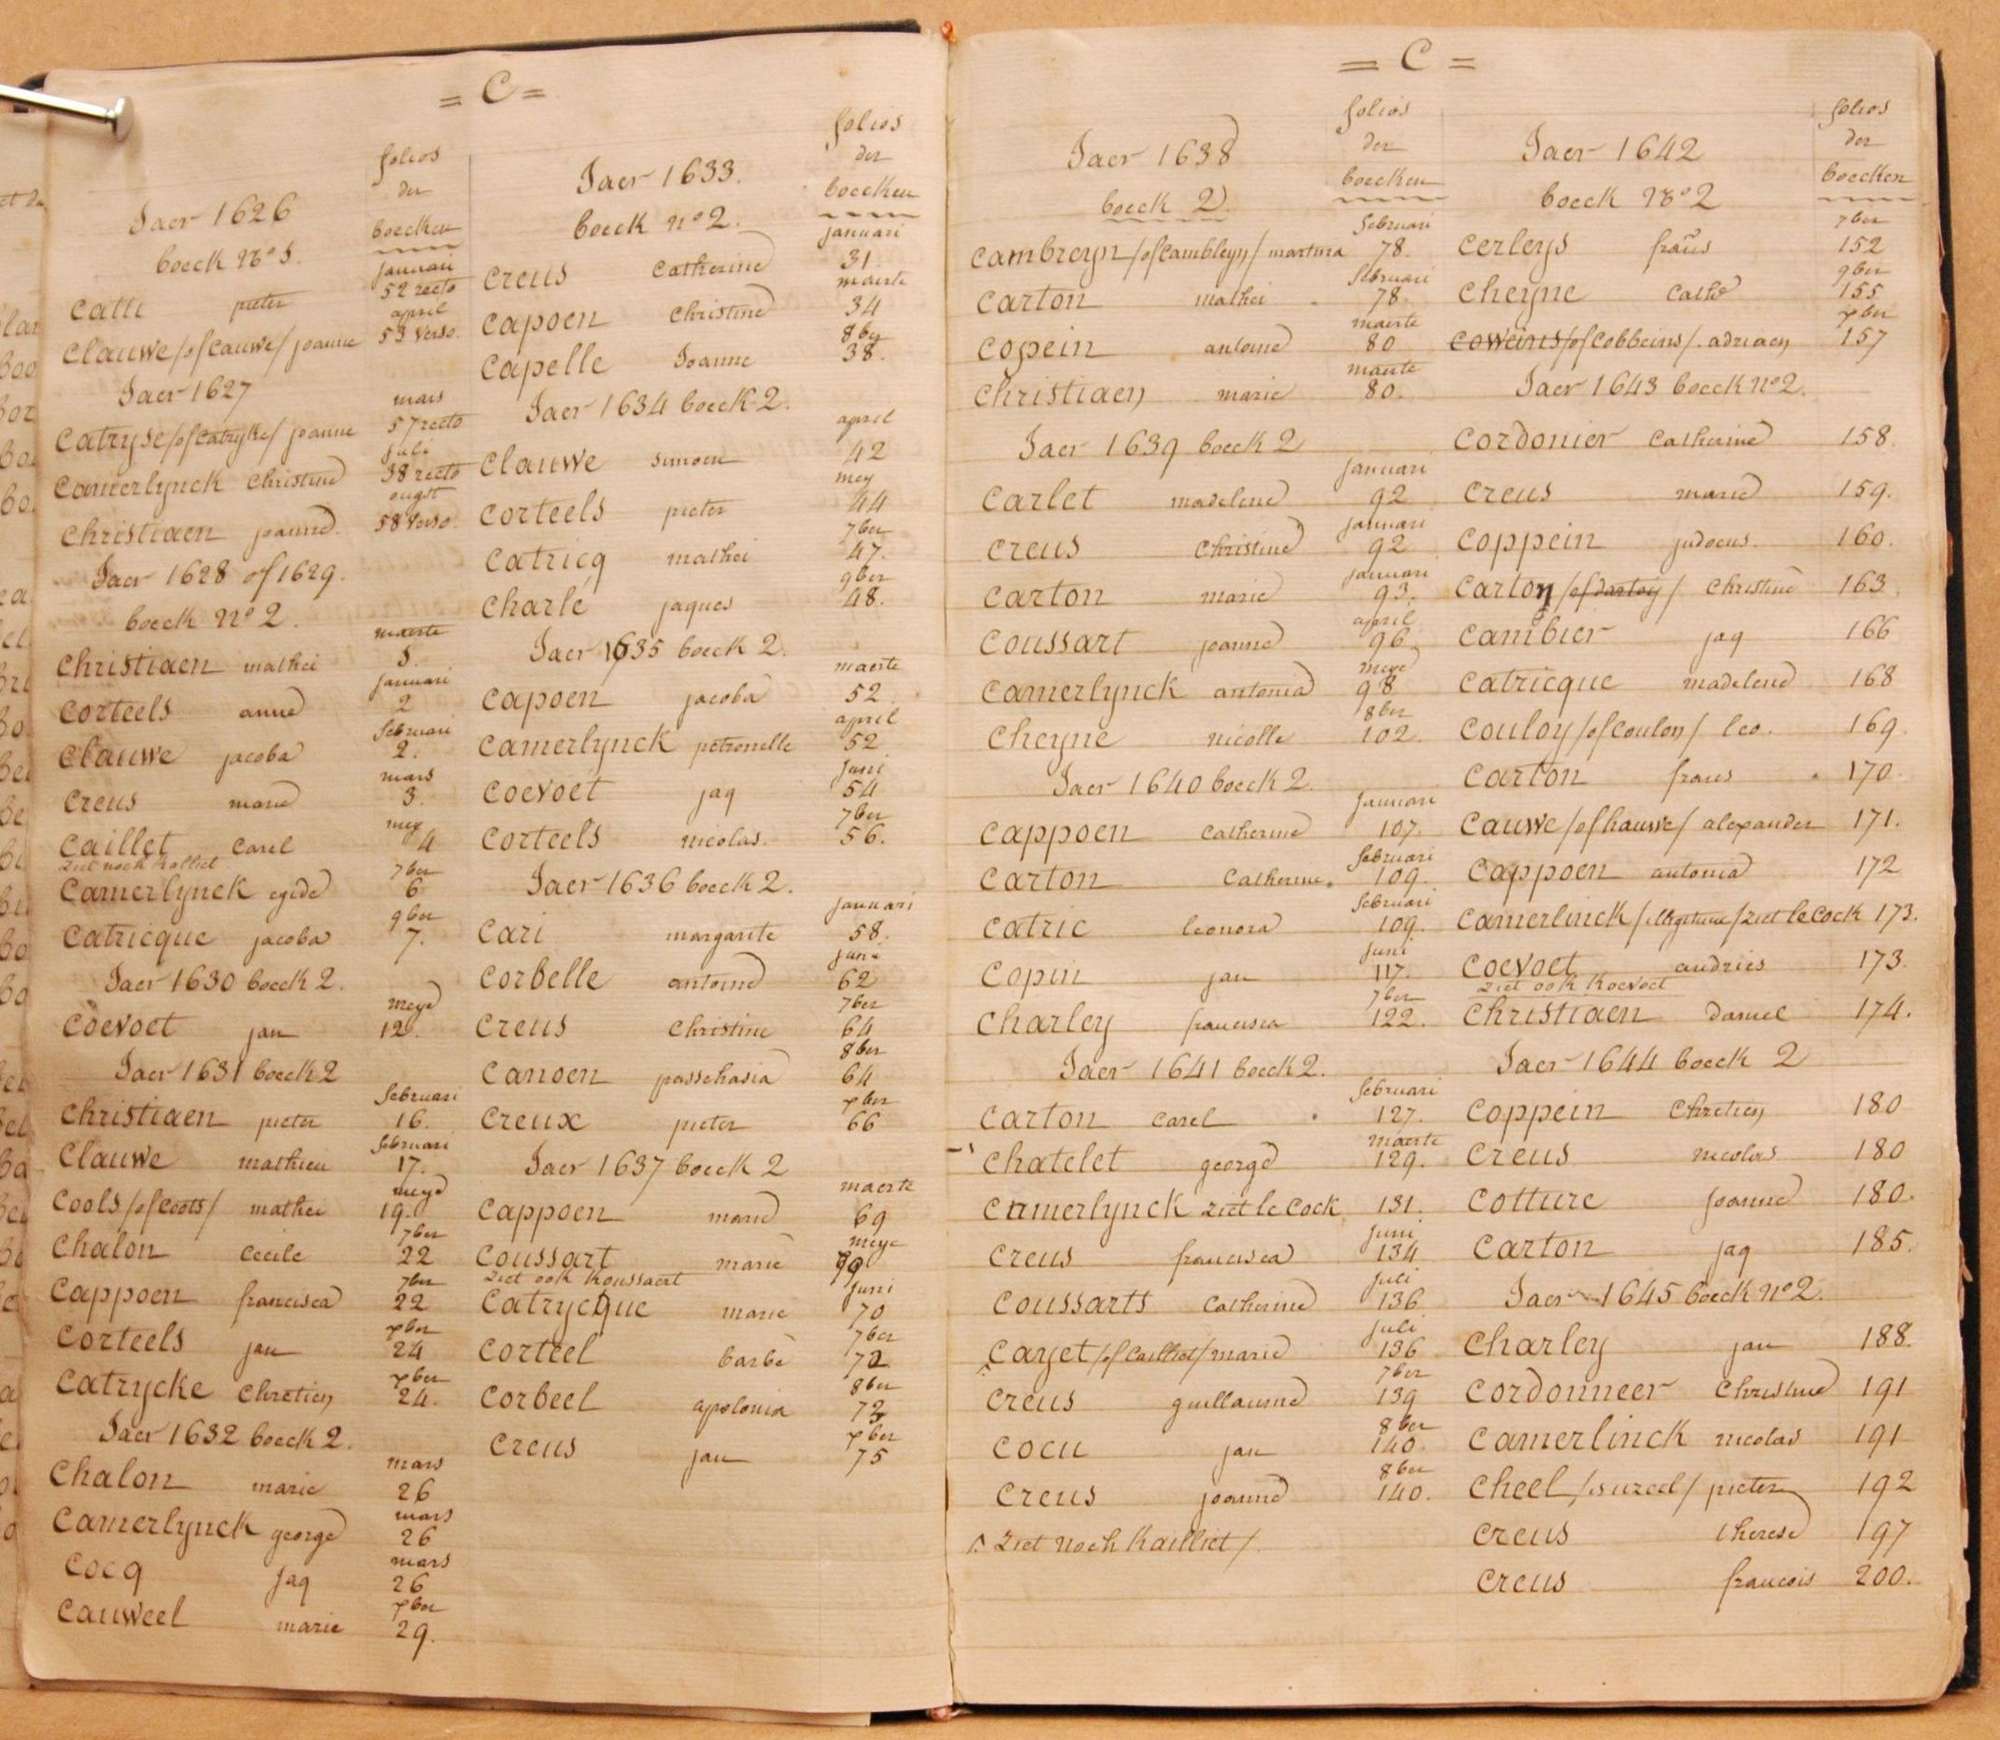 = C =
folios
der
boecken
Jaer 1626
boeck No 1.
januari
Catti pieter 52 recto
april
Clauwe /of Cauwe/ joanne 53 verso.
Jaer 1627
mars
Catryse /of Catryke/ joanne 57 recto
juli
Camerlynck Christine 58 recto
ougst
Christiaen joanne 58 verso.
Jaer 1628 of 1629.
boeck No 2.
maerte
Christiaen mathei
januari
Corteels anne 2
februari
Clauwe jacoba 2.
mars
Creus marie 3.
mey
Caillet Carel 4
ziet noch Kalliet
7ber
Camerlynck egide 6
9ber
Catricque jacoba 7.
Jaer 1630 boeck 2.
meye
Coevoet jan 12.
Jaer 1631 boeck 2
februari
Christiaen pieter 16.
februari
Clauwe mathieu 17.
meye
Cools /of Coots/ mathei 19.
7ber
Chalon Cecile 22
7ber
Cappoen francisca 22
xber
Corteels jan 24
xber
Catrycke Chretien 24.
Jaer 1632 boeck 2.
mars
Chalon marie 26
mars
Camerlynck george 26
mars
Cocq jaq 26
xber
Cauweel marie 29.
folios
der
boecken
Jaer 1633.
boeck No 2.
januari
Creus Catherine 31
maerte
Capoen Christine 34
8ber
Capelle Joanne 38.
Jaer 1634 boeck 2.
april
Clauwe simoen 42
mey
Corteels pieter 44
7ber
Catricq mathei 47.
9ber
Charle jaques 48.
Jaer 1635 boeck 2.
maerte
Capoen jacoba 52
april
Camerlynck petronelle 52
juni
Coevoet jaq 54
7ber
Corteels nicolas. 56.
Jaer 1636 boeck 2.
januari
Cari margarite 58.
juni
Corbelle antoine 62
7ber
Creus Christine 64
8ber
Canoen passchasia 64
xber
Creux pieter 66
Jaer 1637 boeck 2
maerte
Cappoen marie 69
meye
Coussart marie
ziet ook Koussaert
juni
Catrycque marie 70
7ber
Corteel barbe 72
8ber
Corbeel apolonia 72
xber
Creus jan 75
= C =
folios
der
boecken
Jaer 1638
boeck 2
februari
Cambreyn /of Cambleyn/ martina 78.
februari
Carton mathei 78.
maerte
Copein antoine 80
maerte
Christiaen marie 80.
Jaer 1639 boeck 2
januari
Carlet madelene 92
januari
Creus Christine 92
januari
Carton marie 93.
april
Coussart joanne 96
meye
Camerlynck antonia 98
8ber
Cheyne nicolle 102
Jaer 1640 boeck 2.
januari
Cappoen Catherine 107.
februari
Carton Catherine. 109.
februari
Catric leonora 109.
juni
Copin jan 117.
7ber
Charley francisca 122.
Jaer 1641 boeck 2.
februari
Carton Carel 127.
maerte
Chatelet george 129.
Camerlynck ziet le Cock 131.
juni
Creus francisca 134
juli
Coussarts Catherine 136
juli
Cayet /of Cailliet/ marie 136
7ber
Creus guillaume 139
8ber
Cocu jan 140.
8ber
Creus joanne 140.
ziet noch Kailliet /
folios
der
boecken
Jaer 1642
boeck No 2
7ber
Cerleys frans 152
9ber
Cheyne Cath 155
xber
Coweins /of Cobbeins/. adriaen 157
Jaer 1643 boeck No 2.
Cordonier Catherine 158.
Creus marie 159.
Coppein judocus. 160.
Carton /of dartoy/ Christine 163
Cambier jaq 166
Catricque madelene 168
Couloy /of Coulon/ leo. 169.
Carton frans 170.
Cauwe /of hauwe/ alexander 171.
Cappoen antonia 172
Camerlinck / / ziet le Cock 173.
Coevoet andries 173.
ziet ook Koevoet
Christiaen daniel 174.
Jaer 1644 boeck 2
Coppein Chretien 180
Creus nicolas 180
Cotture Joanne 180.
Carton jaq 185.
Jaer 1645 boeck No 2.
Charley jan 188.
Cordonneer Christine 191
Camerlinck nicolas 191
Cheel / / pieter 192
Creus therese 197
Creus francois 200.